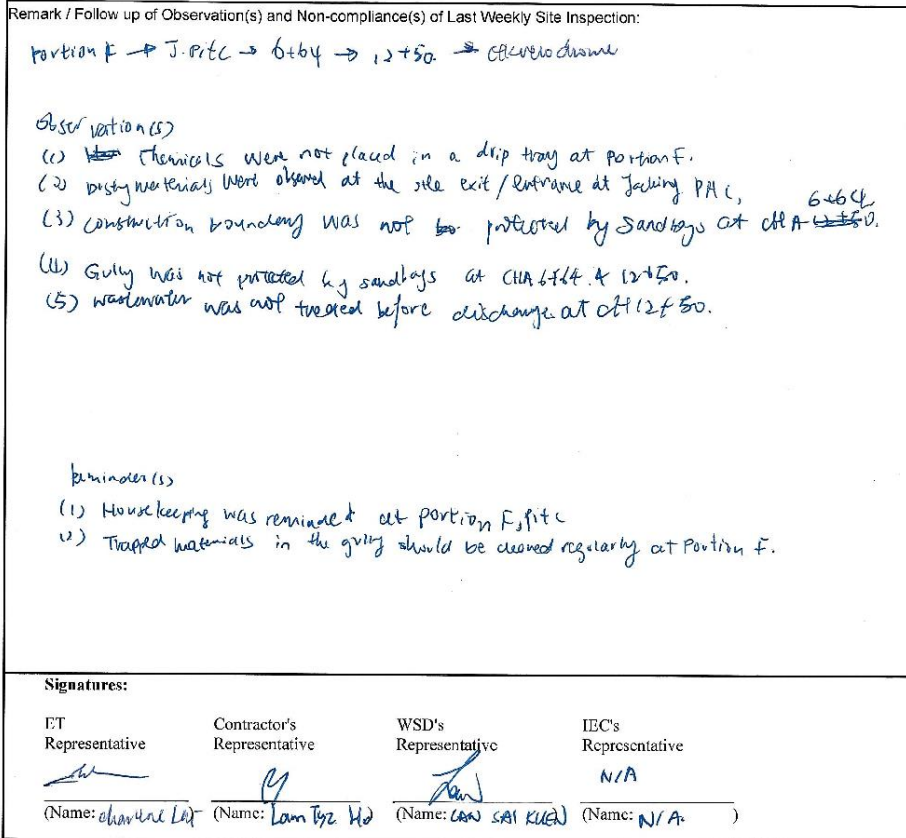 Remark / Follow up of Observation(s) and Non-compliance(s) of Last Weekly Site Inspection:
Portion F → J. Pit C → 6+64 → 12+50 →
Observation(s)
(1) Chemicals were not placed in a drip tray at Portion F.
(2) Dusty materials were observed at the site exit / entrance at Jacking Pit C,
(3) Construction boundary was not protected by sandbags at CHA 6+64.
(4) Gully was not protected by sandbags at CHA 6+64 & 12+50.
(5) wastewater was not treated before discharge at CH 12+50.
Reminder(s)
(1) Housekeeping was reminded at portion F, Pit C
(2) Trapped materials in the gully should be cleared regularly at Portion F.
Signatures:
ET Representative
Contractor's Representative
WSD's Representative
IEC's Representative
N/A
(Name: (Name: Lam (Name: LAW SAI KUEN) (Name: N/A. )